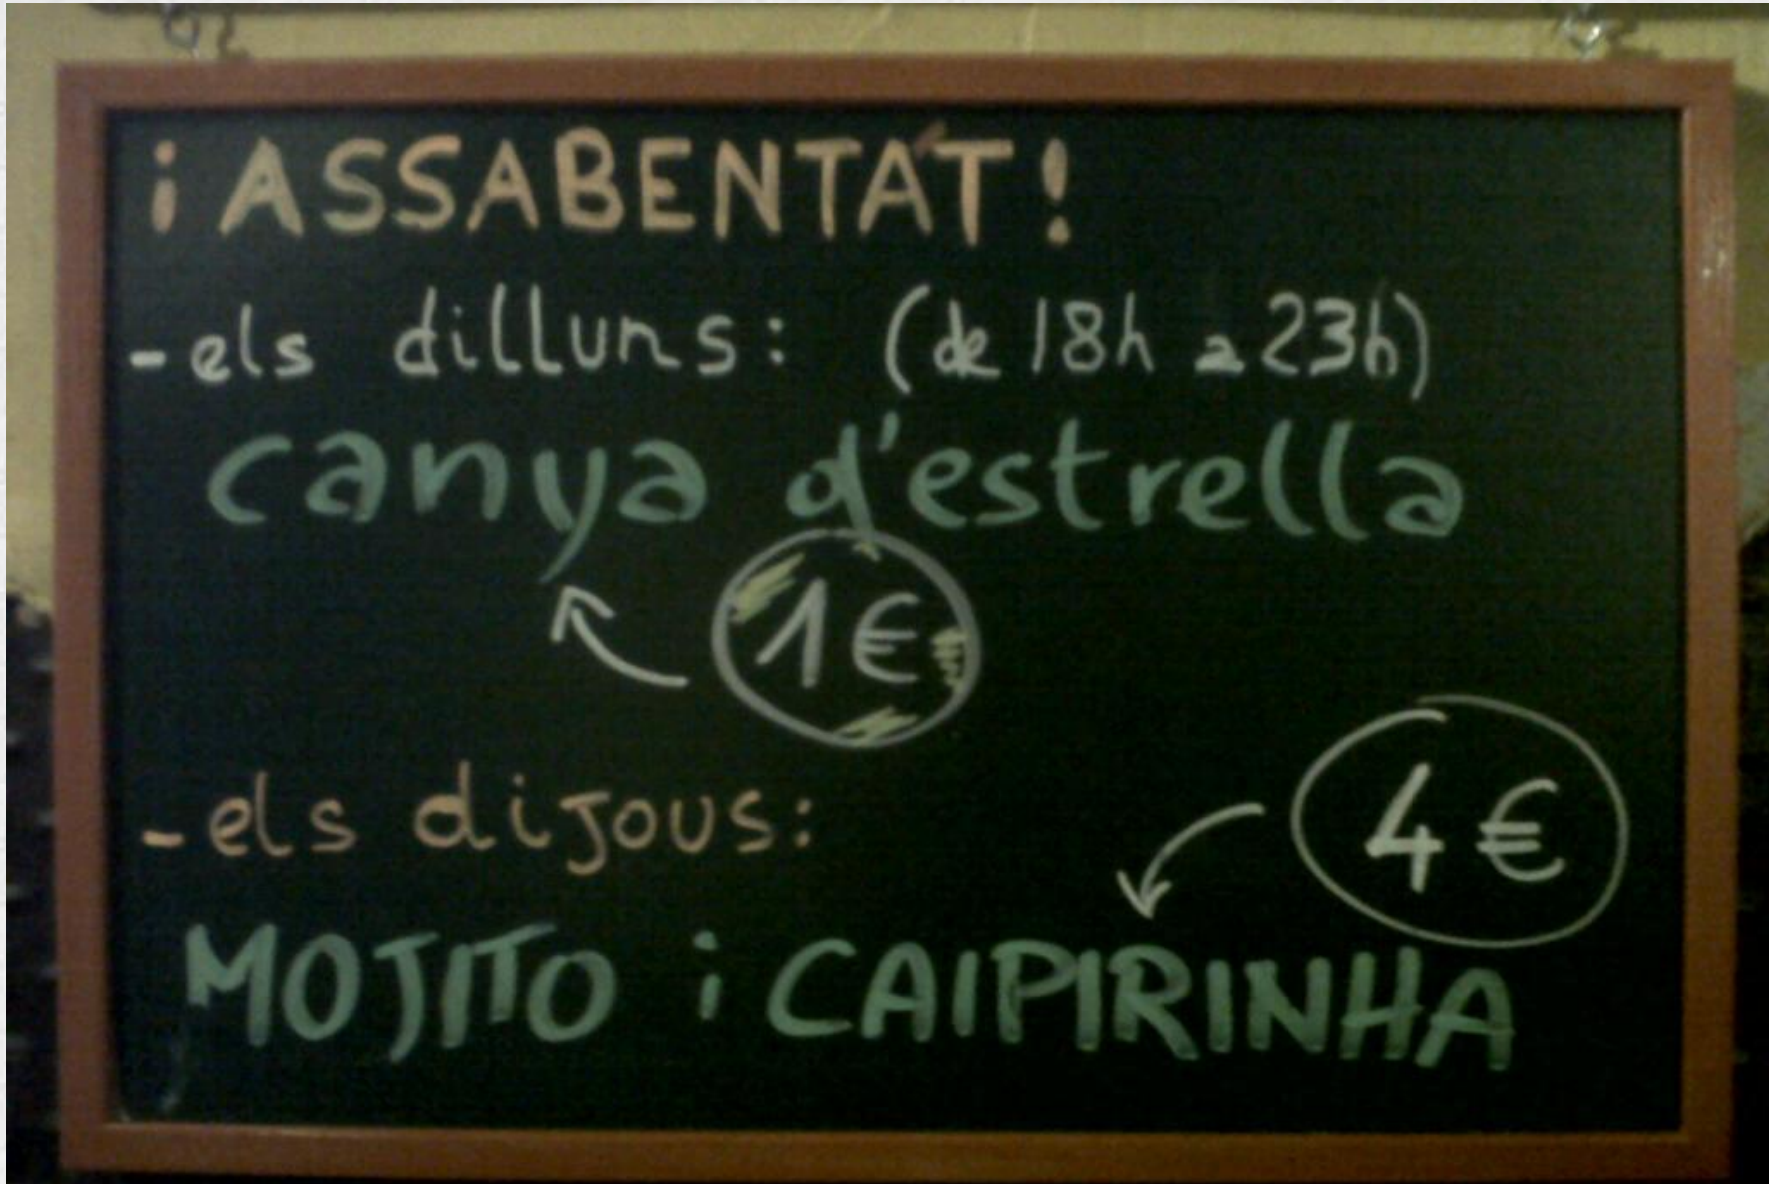 ¡ASSABENTA'T!
-els dilluns: (de 18h a 23h)
canya d'estrella
1€
-els dijous:
4€
MOJITO i CAIPIRINHA